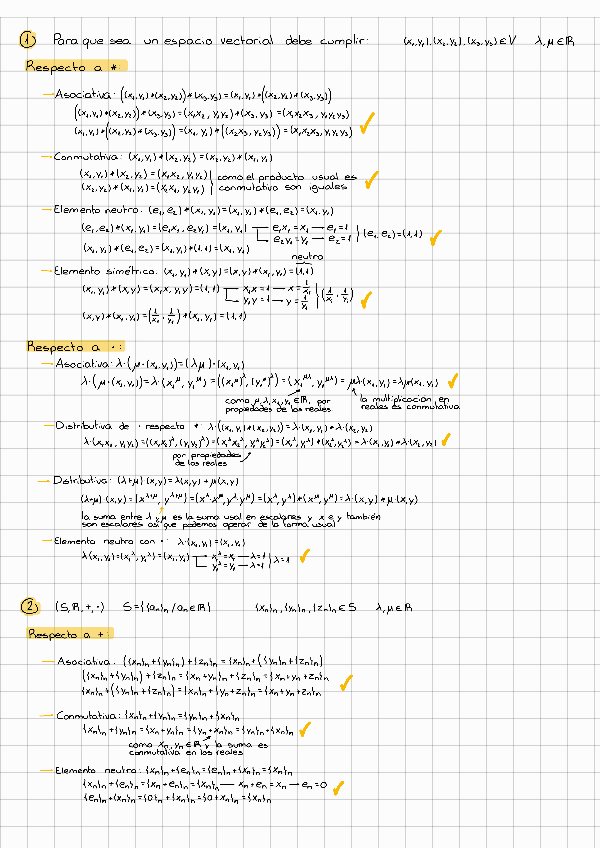 1 Para que sea un espacio vectorial debe cumplir: (x₁,y₁),(x₂,y₂),(x₃,y₃)∈V λ,μ∈ℝ
Respecto a *:
Asociativa: ((x₁,y₁)*(x₂,y₂))*(x₃,y₃)=(x₁,y₁)*((x₂,y₂)*(x₃,y₃))
((x₁,y₁)*(x₂,y₂))*(x₃,y₃)=(x₁x₂,y₁y₂)*(x₃,y₃)=(x₁x₂x₃,y₁y₂y₃) ✓
(x₁,y₁)*((x₂,y₂)*(x₃,y₃))=(x₁,y₁)*((x₂x₃,y₂y₃))=(x₁x₂x₃,y₁y₂y₃)
Conmutativa: (x₁,y₁)*(x₂,y₂)=(x₂,y₂)*(x₁,y₁)
(x₁,y₁)*(x₂,y₂)=(x₁x₂,y₁y₂) como el producto usual es ✓
(x₂,y₂)*(x₁,y₁)=(x₂x₁,y₂y₁) conmutativo son iguales
Elemento neutro: (e₁,e₂)*(x₁,y₁)=(x₁,y₁)*(e₁,e₂)=(x₁,y₁)
(e₁,e₂)*(x₁,y₁)=(e₁x₁,e₂y₁)=(x₁,y₁) e₁x₁=x₁ — e₁=1
e₂y₁=y₁ — e₂=1 } (e₁,e₂)=(1,1) ✓
(x₁,y₁)*(e₁,e₂)=(x₁,y₁)*(1,1)=(x₁,y₁)
neutro
Elemento simétrico: (x₁,y₁)*(x,y)=(x,y)*(x₁,y₁)=(1,1)
(x₁,y₁)*(x,y)=(x₁x,y₁y)=(1,1) x₁x=1 — x=1/x₁
y₁y=1 — y=1/y₁ } (1/x₁,1/y₁) ✓
(x,y)*(x₁,y₁)=(1/x₁,1/y₁)*(x₁,y₁)=(1,1)
Respecto a ·:
Asociativa: λ·(μ·(x₁,y₁))=(λμ)·(x₁,y₁)
λ·(μ·(x₁,y₁))=λ·(x₁^μ,y₁^μ)=((x₁^μ)^λ,(y₁^μ)^λ)=(x₁^μλ,y₁^μλ)=μλ(x₁,y₁)=λμ(x₁,y₁) ✓
como μ,λ,x₁,y₁∈ℝ, por la multiplicación en
propiedades de los reales reales es conmutativa
Distributiva de · respecto *: λ·((x₁,y₁)*(x₂,y₂))=λ·(x₁,y₁)*λ·(x₂,y₂)
λ·(x₁x₂,y₁y₂)=((x₁x₂)^λ,(y₁y₂)^λ)=(x₁^λx₂^λ,y₁^λy₂^λ)=(x₁^λ,y₁^λ)*(x₂^λ,y₂^λ)=λ·(x₁,y₁)*λ·(x₂,y₂) ✓
por propiedades
de los reales
Distributiva: (λ+μ)(x,y)=λ(x,y)+μ(x,y)
(λ+μ)(x,y)=(x^λ+μ,y^λ+μ)=(x^λ·x^μ,y^λ y^μ)=(x^λ,y^λ)*(x^μ,y^μ)=λ·(x,y)*μ·(x,y)
la suma entre λ y μ es la suma usual en escalares y x e y también
son escalares así que podemos operar de la forma usual
Elemento neutro con ·: λ·(x₁,y₁)=(x₁,y₁)
λ(x₁,y₁)=(x₁^λ,y₁^λ)=(x₁,y₁) x₁^λ=x₁ — λ=1
y₁^λ=y₁ — λ=1 } λ=1 ✓
2 (S,ℝ,+,·) S={{aₙ}ₙ/aₙ∈ℝ} {xₙ}ₙ,{yₙ}ₙ,{zₙ}ₙ∈S λ,μ∈ℝ
Respecto a +:
Asociativa: ({xₙ}ₙ+{yₙ}ₙ)+{zₙ}ₙ={xₙ}ₙ+({yₙ}ₙ+{zₙ}ₙ)
({xₙ}ₙ+{yₙ}ₙ)+{zₙ}ₙ={xₙ+yₙ}ₙ+{zₙ}ₙ={xₙ+yₙ+zₙ}ₙ ✓
{xₙ}ₙ+({yₙ}ₙ+{zₙ}ₙ)={xₙ}ₙ+{yₙ+zₙ}ₙ={xₙ+yₙ+zₙ}ₙ
Conmutativa: {xₙ}ₙ+{yₙ}ₙ={yₙ}ₙ+{xₙ}ₙ
{xₙ}ₙ+{yₙ}ₙ={xₙ+yₙ}ₙ={yₙ+xₙ}ₙ={yₙ}ₙ+{xₙ}ₙ ✓
como xₙ,yₙ∈ℝ y la suma es
conmutativa en los reales
Elemento neutro: {xₙ}ₙ+{eₙ}ₙ={eₙ}ₙ+{xₙ}ₙ={xₙ}ₙ
{xₙ}ₙ+{eₙ}ₙ={xₙ+eₙ}ₙ={xₙ}ₙ — xₙ+eₙ=xₙ → eₙ=0 ✓
{eₙ}ₙ+{xₙ}ₙ={0}ₙ+{xₙ}ₙ={0+xₙ}ₙ={xₙ}ₙ